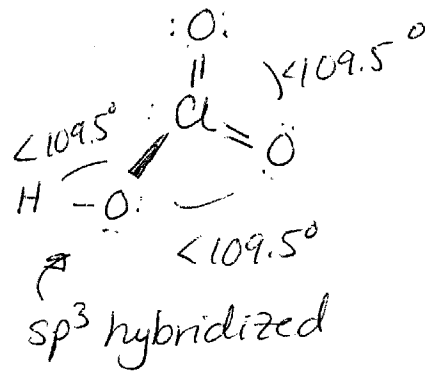 :Ö:
<109.5°
:Cl
<109.5°
Ö
H -O:
<109.5°
sp³ hybridized